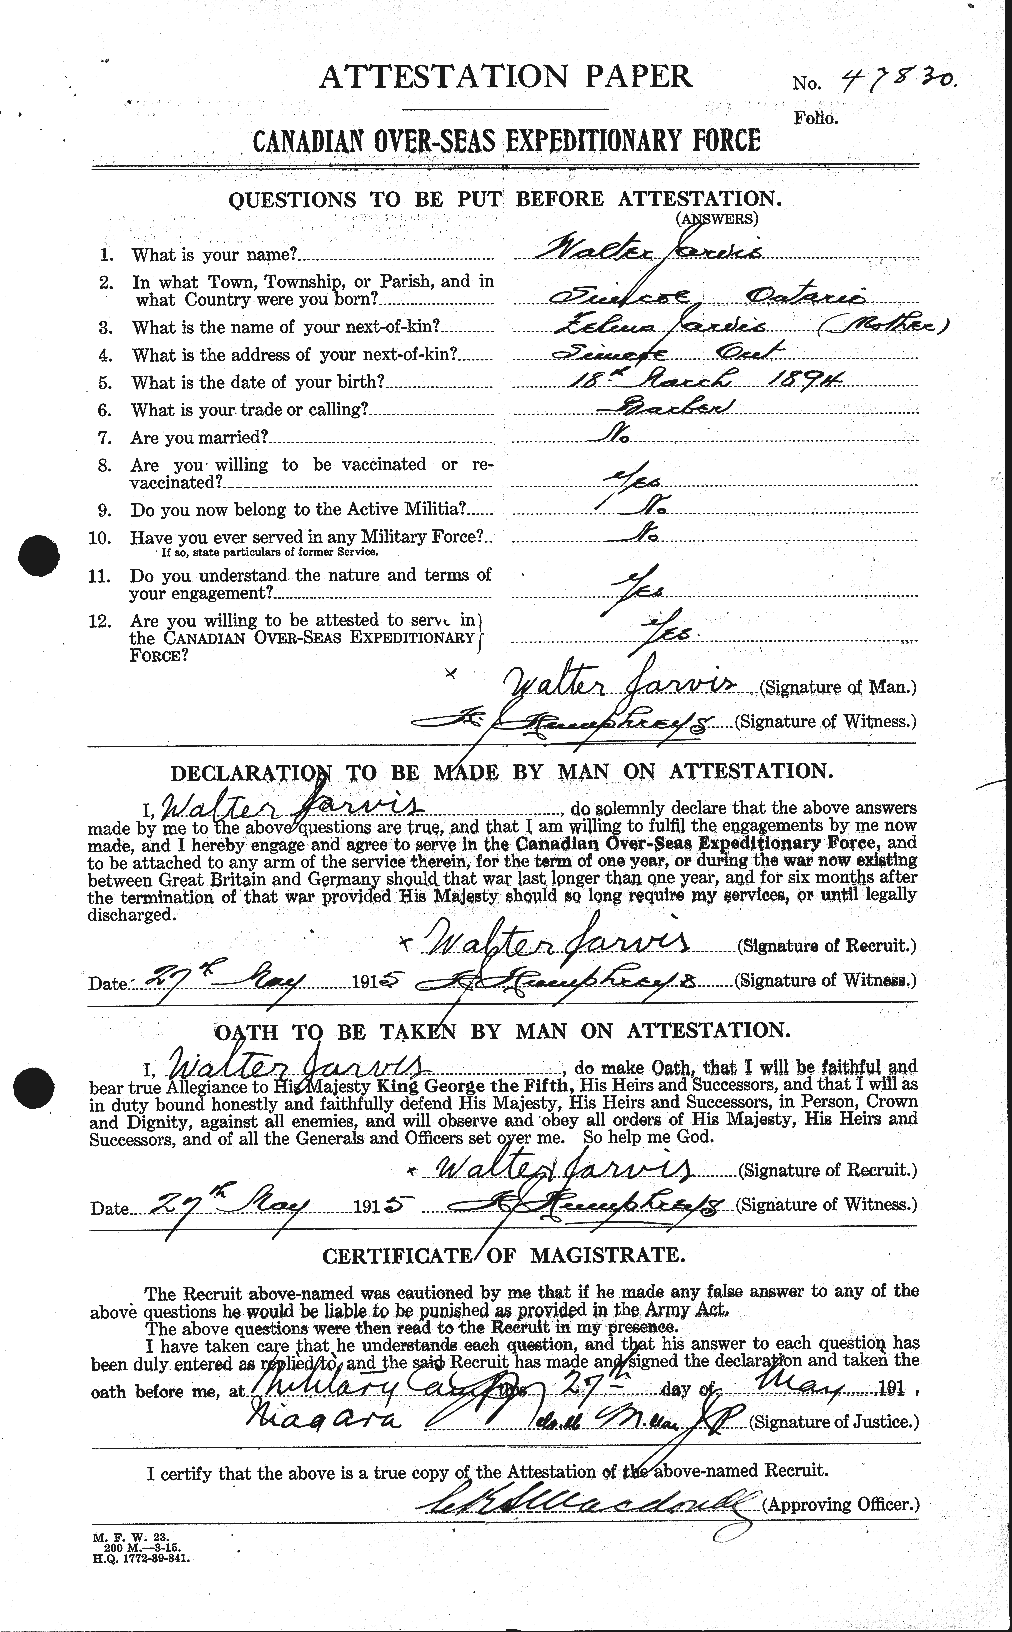 ATTESTATION PAPER
No. 47830.
Folio.
CANADIAN OVER-SEAS EXPEDITIONARY FORCE
QUESTIONS TO BE PUT BEFORE ATTESTATION.
(ANSWERS)
1. What is your name? Walter Jarvis
2. In what Town, Township, or Parish, and in
what Country were you born? Simcoe, Ontario
3. What is the name of your next-of-kin? Zelma Jarvis (Mother)
4. What is the address of your next-of-kin? Simcoe Ont
5. What is the date of your birth? 18th March 1894
6. What is your trade or calling? Barber
7. Are you married? No
8. Are you willing to be vaccinated or re-
vaccinated? Yes
9. Do you now belong to the Active Militia? No
10. Have you ever served in any Military Force? No
If so, state particulars of former Service.
11. Do you understand the nature and terms of
your engagement? Yes
12. Are you willing to be attested to serve in
the CANADIAN OVER-SEAS EXPEDITIONARY Yes.
FORCE?
x Walter Jarvis (Signature of Man.)
Humphreys (Signature of Witness.)
DECLARATION TO BE MADE BY MAN ON ATTESTATION.
I, Walter Jarvis, do solemnly declare that the above answers
made by me to the above questions are true, and that I am willing to fulfil the engagements by me now
made, and I hereby engage and agree to serve in the Canadian Over-Seas Expeditionary Force, and
to be attached to any arm of the service therein, for the term of one year, or during the war now existing
between Great Britain and Germany should that war last longer than one year, and for six months after
the termination of that war provided His Majesty should so long require my services, or until legally
discharged.
x Walter Jarvis (Signature of Recruit.)
Date 27th May 1915 Humphreys (Signature of Witness.)
OATH TO BE TAKEN BY MAN ON ATTESTATION.
I, Walter Jarvis, do make Oath, that I will be faithful and
bear true Allegiance to His Majesty King George the Fifth, His Heirs and Successors, and that I will as
in duty bound honestly and faithfully defend His Majesty, His Heirs and Successors, in Person, Crown
and Dignity, against all enemies, and will observe and obey all orders of His Majesty, His Heirs and
Successors, and of all the Generals and Officers set over me. So help me God.
x Walter Jarvis (Signature of Recruit.)
Date 27th May 1915 Humphreys (Signature of Witness.)
CERTIFICATE OF MAGISTRATE.
The Recruit above-named was cautioned by me that if he made any false answer to any of the
above questions he would be liable to be punished as provided in the Army Act.
The above questions were then read to the Recruit in my presence.
I have taken care that he understands each question, and that his answer to each question has
been duly entered as replied to, and the said Recruit has made and signed the declaration and taken the
oath before me, at Military Camp this 27th day of May 191 .
Niagara JP (Signature of Justice.)
I certify that the above is a true copy of the Attestation of the above-named Recruit.
Macdonell (Approving Officer.)
M. F. W. 23.
200 M.—3-15.
H.Q. 1772-39-841.